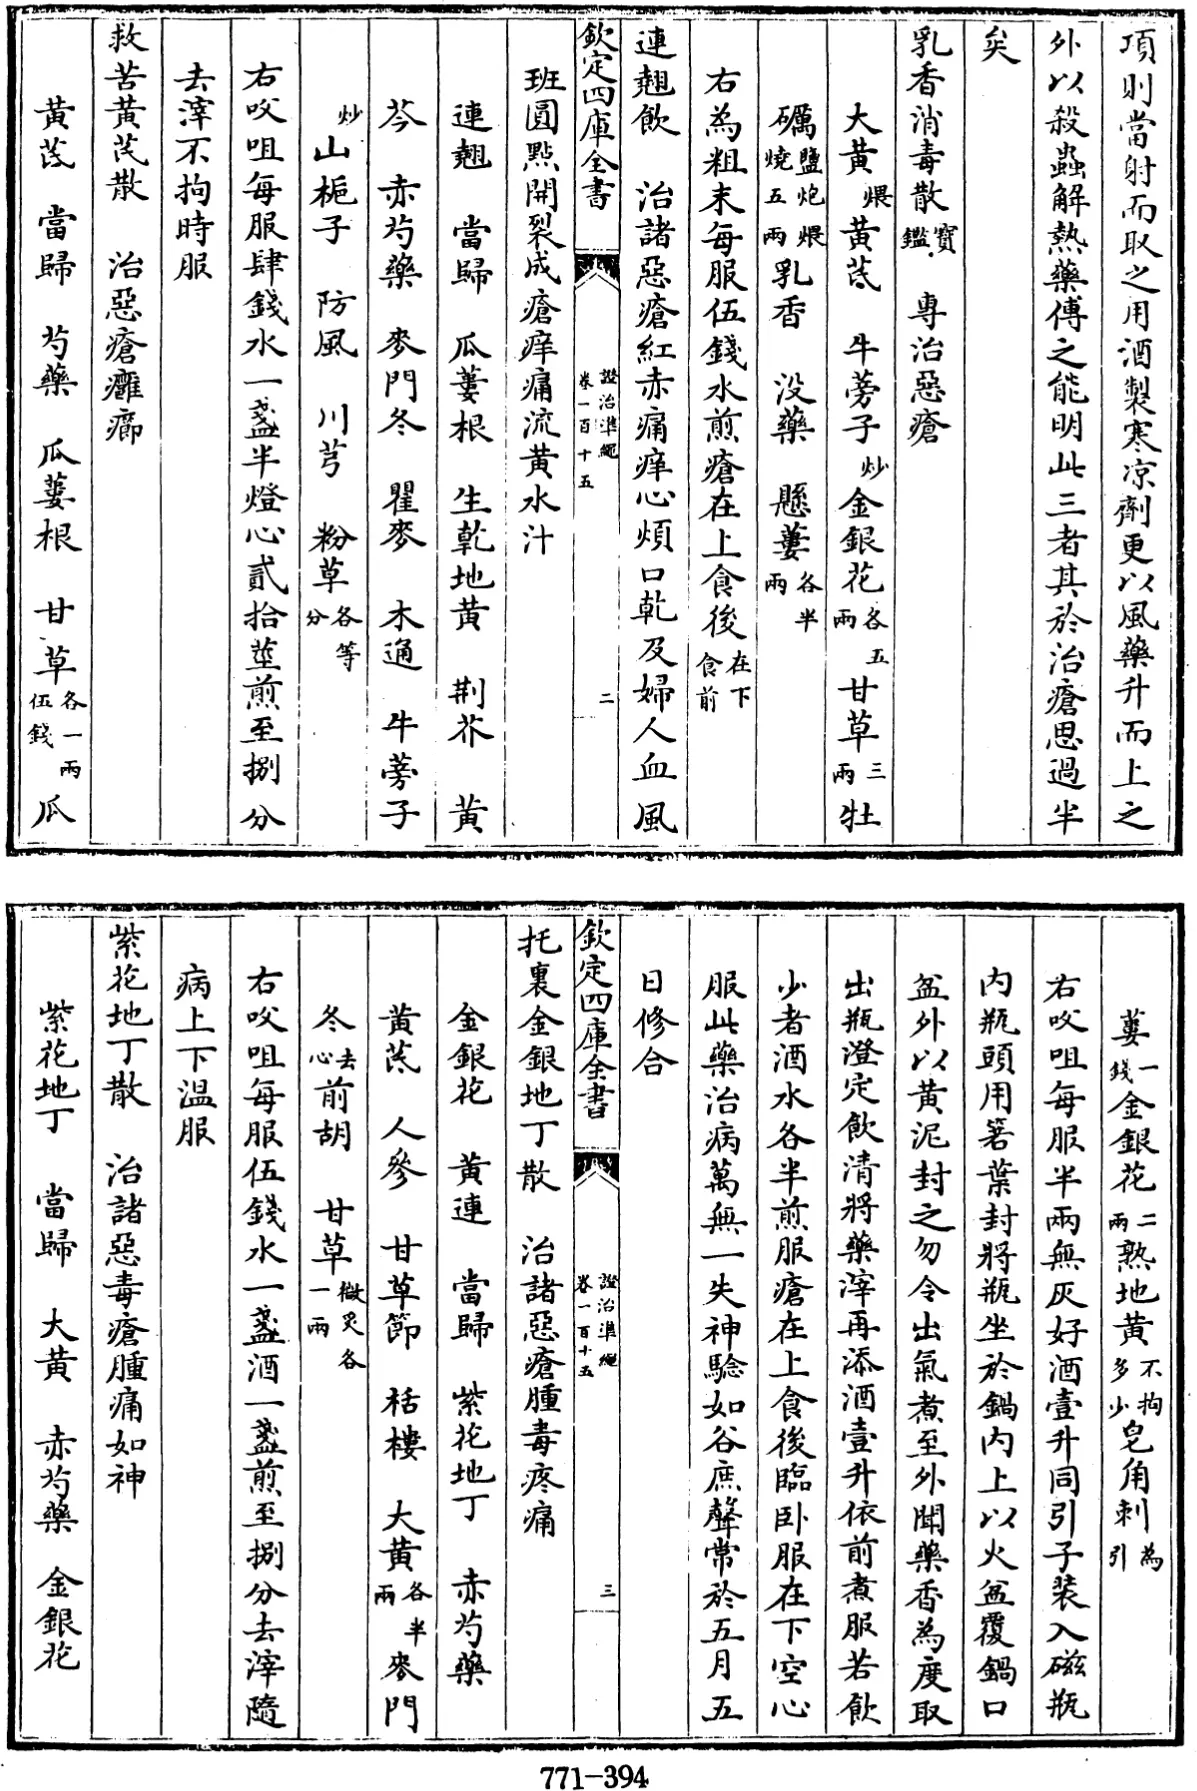 項則當射而取之用酒製寒凉劑更以風藥升而上之
外以殺蟲解熱藥傅之能明此三者其於治瘡思過半
矣
乳香消毒散寶鑑 専治惡瘡
大黄煨黄茋 牛蒡子炒金銀花各五兩甘草三兩牡
礪鹽炮煨燒五兩乳香 没藥 懸蔞各半兩
右為粗末每服伍錢水煎瘡在上食後在下食前
連翹飲 治諸惡瘡紅赤痛痒心煩口乾及婦人血風
欽定四庫全書 證治準繩 卷一百十五 二
班圓㸃開裂成瘡痒痛流黄水汁
連翹 當歸 瓜蔞根 生乾地黄 荆芥 黄
芩 赤芍藥 麥門冬 瞿麥 木通 牛蒡子
炒山梔子 防風 川芎 粉草各等分
右㕮咀每服肆錢水一盞半燈心貳拾莖煎至捌分
去滓不拘時服
救苦黄茋散 治惡瘡癰癤
黄茋 當歸 芍藥 瓜蔞根 甘草各一兩伍錢瓜
蔞一錢金銀花二兩熟地黄不拘多少皂角刺為引
右㕮咀每服半兩無灰好酒壹升同引子装入磁瓶
内瓶頭用箬葉封將瓶坐於鍋内上以火盆覆鍋口
盆外以黄泥封之勿令出氣煮至外聞藥香為度取
出瓶澄定飲清將藥滓再添酒壹升依前煮服若飲
少者酒水各半煎服瘡在上食後臨卧服在下空心
服此藥治病萬無一失神驗如谷應聲常於五月五
日修合
欽定四庫全書 證治準繩 卷一百十五 三
托裏金銀地丁散 治諸惡瘡腫毒疼痛
金銀花 黄連 當歸 紫花地丁 赤芍藥
黄茋 人參 甘草節 栝樓 大黄各半兩麥門
冬去心前胡 甘草微炙各一兩
右㕮咀每服伍錢水一盞酒一盞煎至捌分去滓隨
病上下温服
紫花地丁散 治諸惡毒瘡腫痛如神
紫花地丁 當歸 大黄 赤芍藥 金銀花
771-394